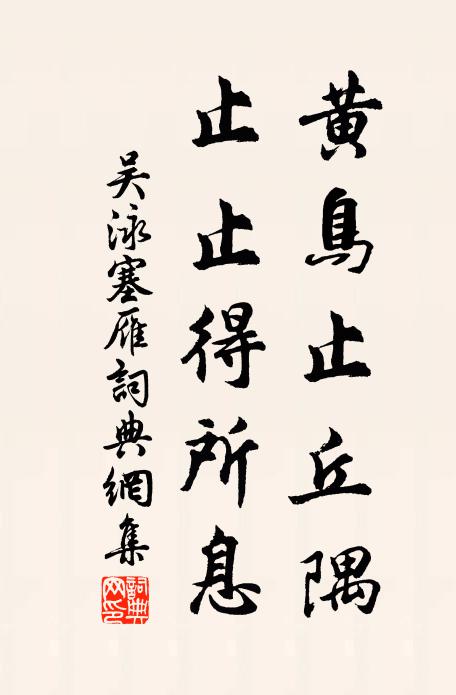 黄鳥止丘隅
止止得所息
吴泳塞雁詞典網集
詞典网印